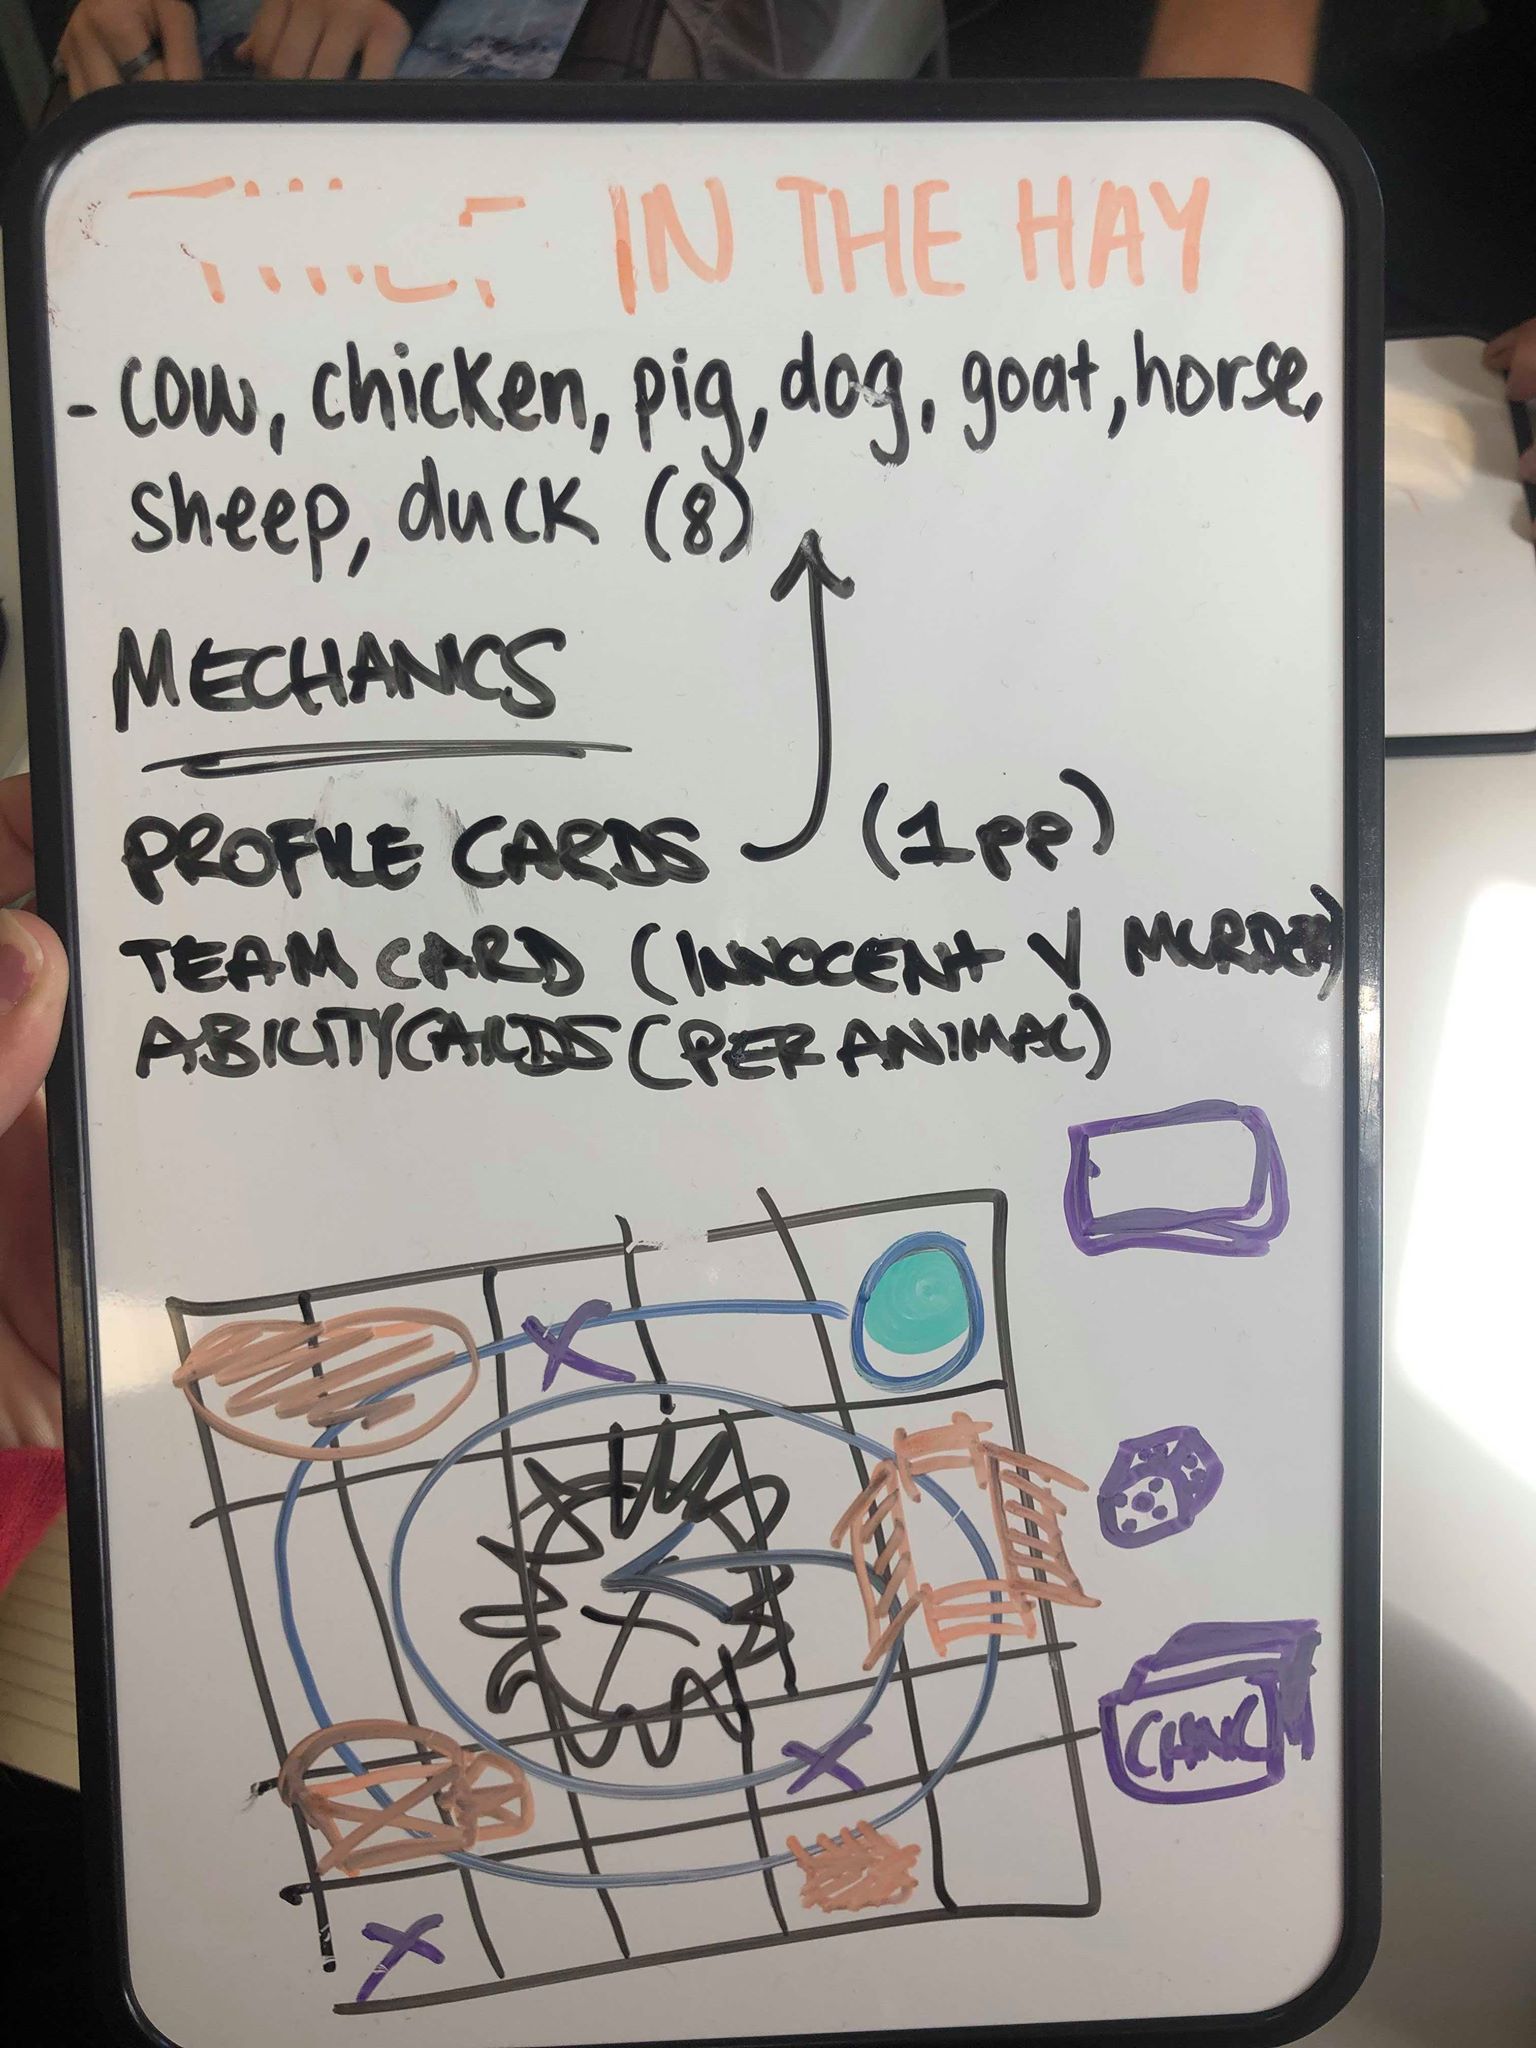 IN THE HAY
- cow, chicken, pig, dog, goat, horse,
sheep, duck (8)
MECHANICS
PROFILE CARDS (1pp)
TEAM CARD (INNOCENT V MURDER)
ABILITY CARDS (PER ANIMAL)
CHNC